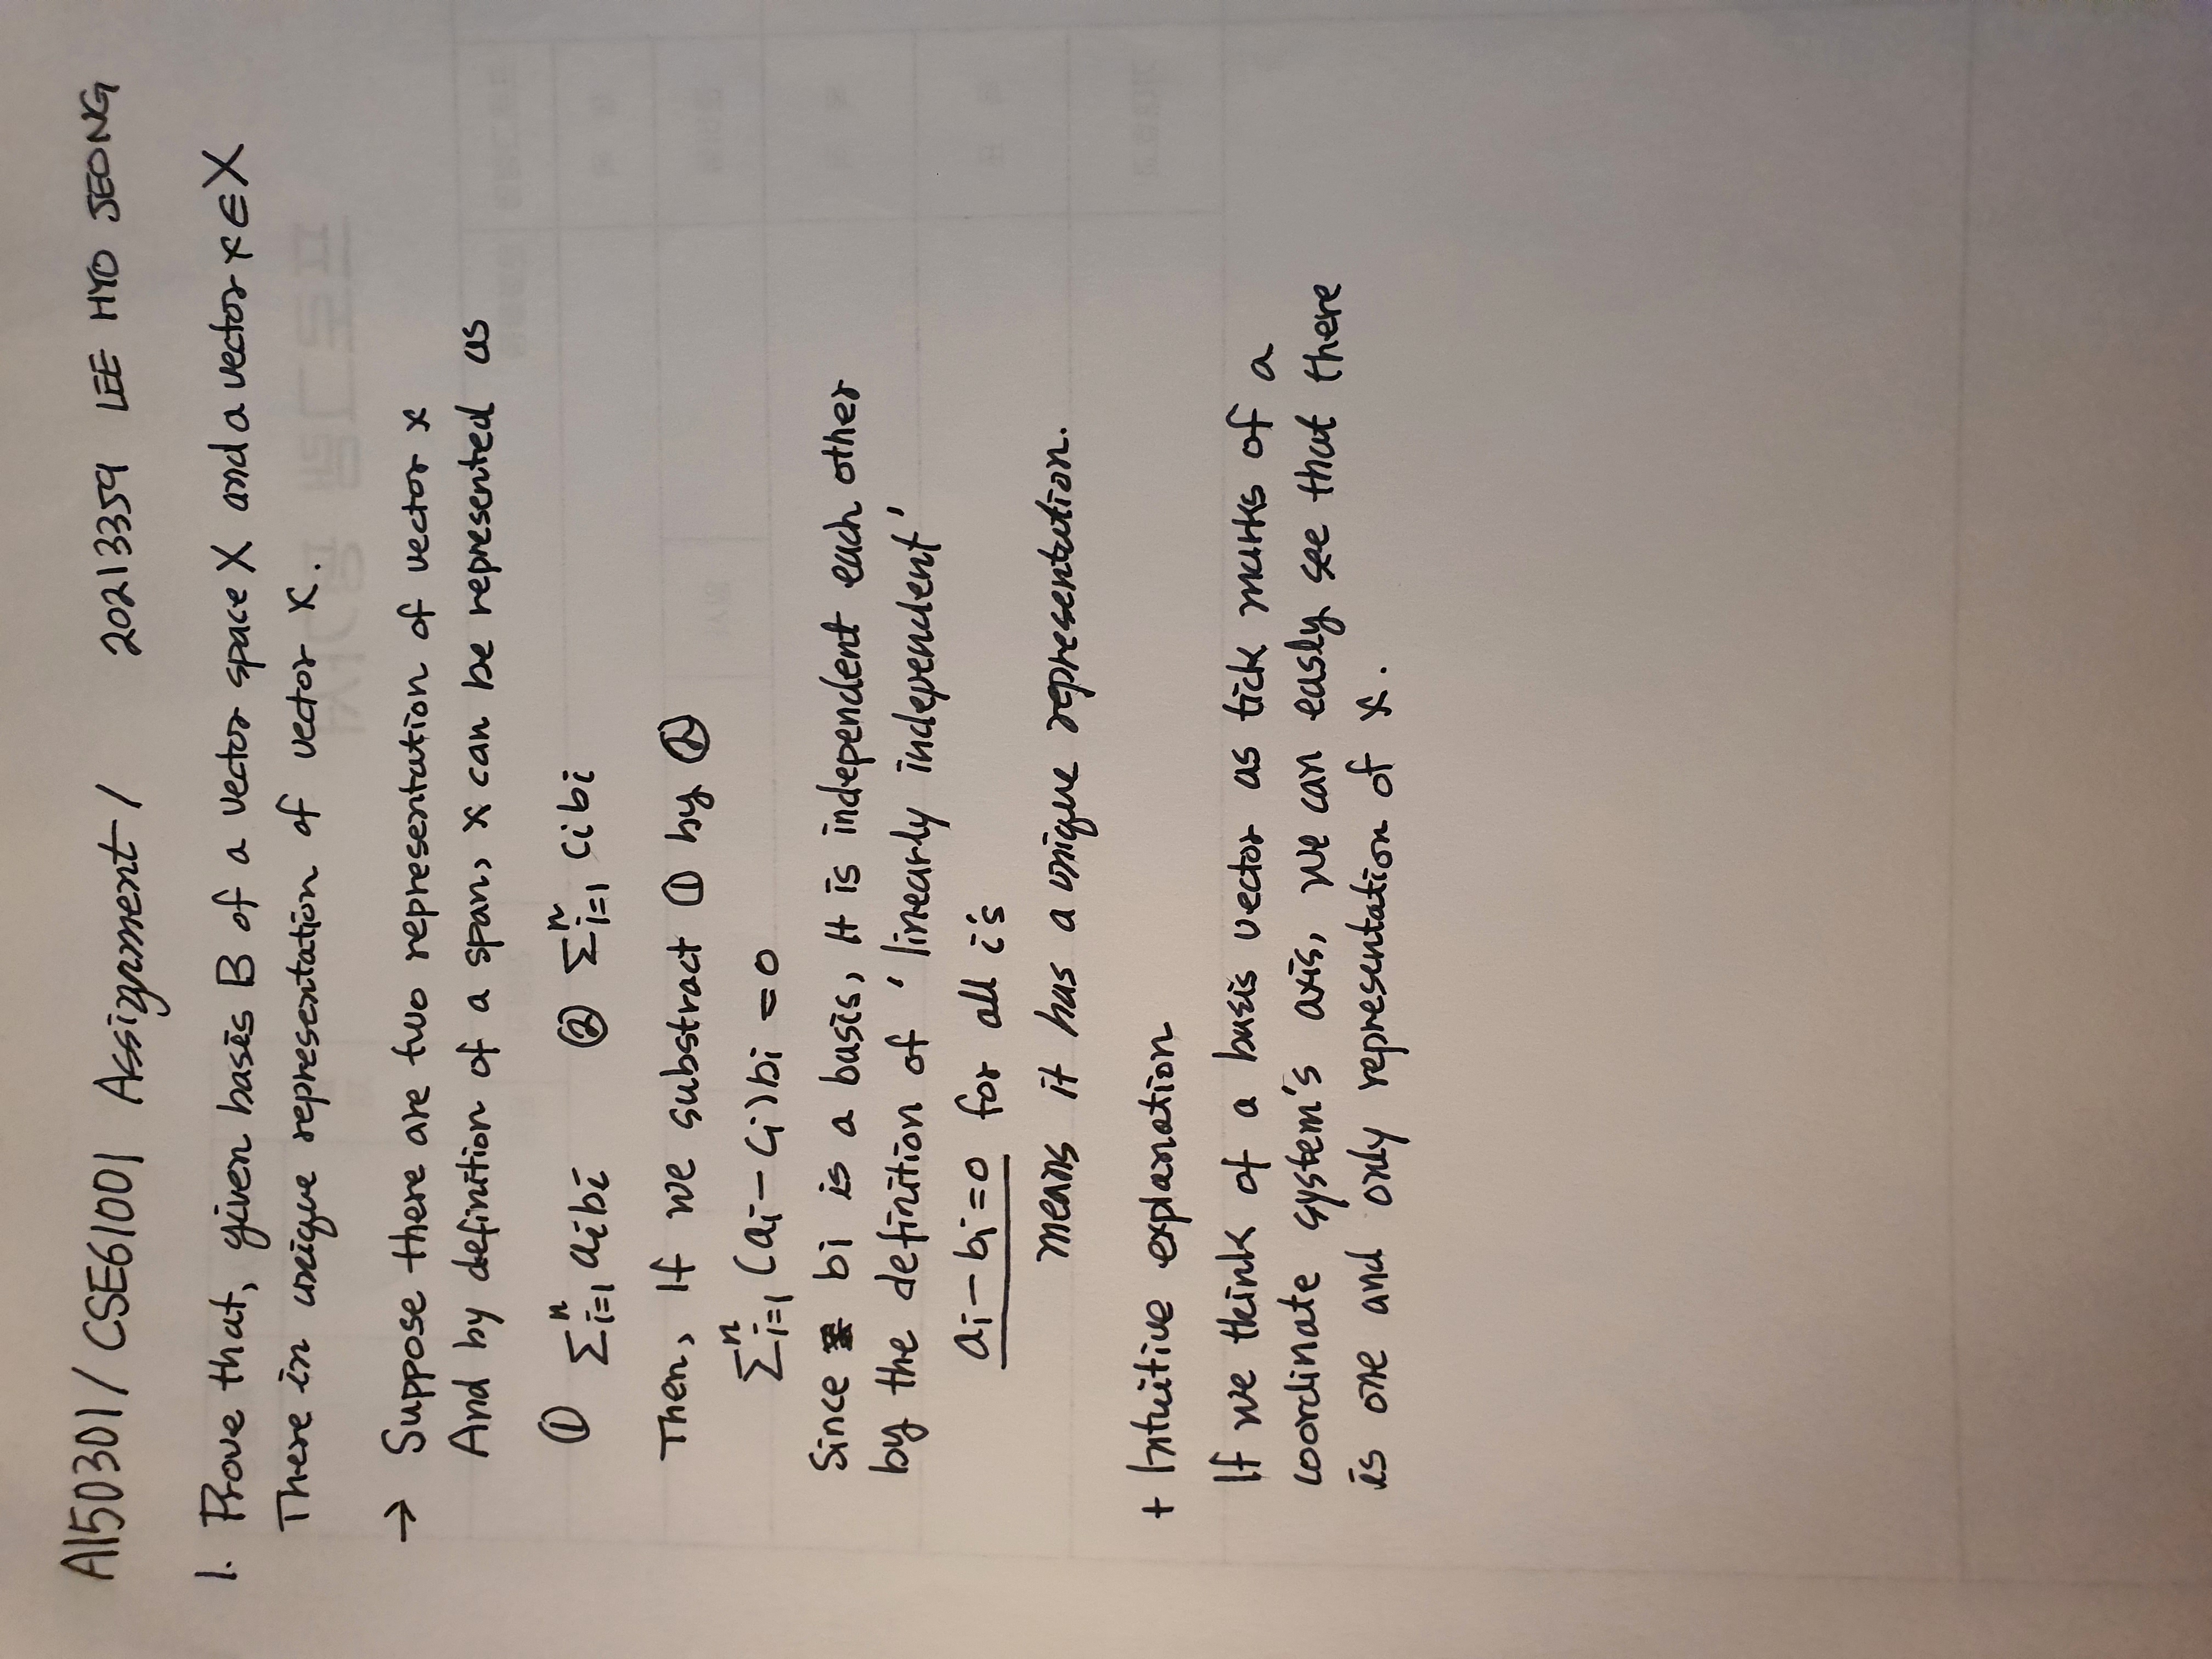 AI50301/ CSE61001 Assignment 1 20213359 LEE HYO JEONG
1. Prove that, given basis B of a vector space X and a vector x∈X
There in unique representation of vector x.
→ Suppose there are two representation of vector x
And by definition of a span, x can be represented as
① Σⁿᵢ₌₁ aᵢbᵢ ② Σⁿᵢ₌₁ cᵢbᵢ
Then, If we substract ① by ②
Σⁿᵢ₌₁ (aᵢ-cᵢ)bᵢ = 0
Since bi is a basis, It is independent each other
by the definition of 'linearly independent'
aᵢ-bᵢ=0 for all i's
means it has a unique representation.
+ Intuitive explanation
If we think of a basis vector as tick marks of a
coordinate system's axis, we can easly see that there
is one and only representation of x.
프로그램 평가서